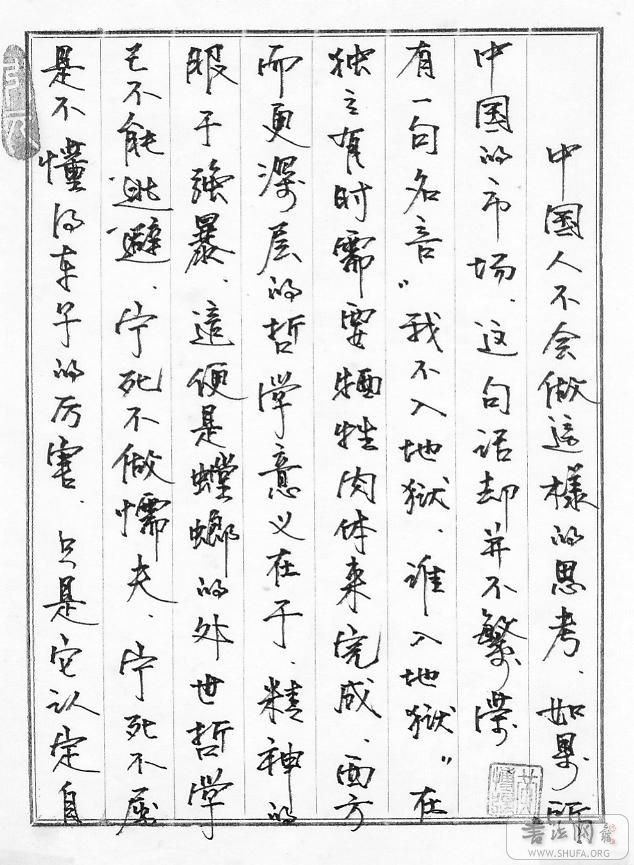 中国人不会做這樣的思考、如果所
中国的市场、这句话却并不繁荣
有一句名言“我不入地狱、谁入地狱”在
独立有时需要牺牲肉体来完成、西方
而更深层的哲学意义在于、精神的
服于強暴、這便是螳螂的处世哲学
它不能逃避、宁死不做懦夫、宁死不屈
是不懂得车子的厉害、只是它认定自
书法网
WWW.SHUFA.ORG